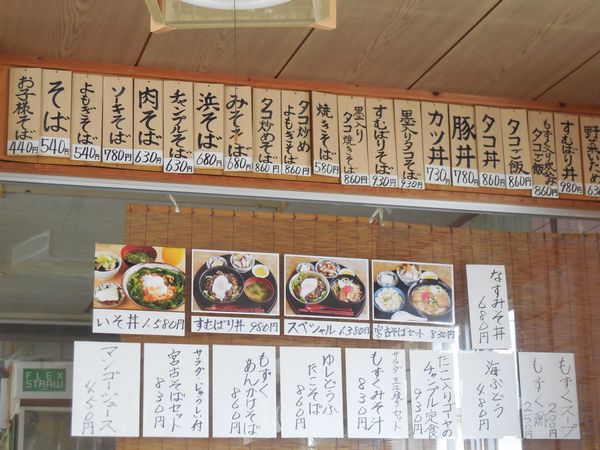 お子様そば
440円
そば
540円
よもぎそば
540円
ソーキそば
780円
肉そば
630円
チャンプルそば
630円
浜そば
680円
みそそば
680円
タコ炒めそば
860円
タコ炒め
よもぎそば
860円
焼きそば
580円
墨入り
タコ焼きそば
860円
すむばりそば
930円
墨入りタコそば
930円
カツ丼
730円
豚丼
780円
タコ丼
860円
タコご飯
860円
もずく炊込み
タコご飯
860円
すむばり丼
980円
野菜いため
630
いそ丼 1.580円
すむばり丼 980円
スペシャル 1.380円
宮古そばセット 830円
なすみそ丼
680円
FLEX
STRAW
マンゴージュース
450円
サラダ、ジューシィ付
宮古そばセット
830円
もずく
あんかけそば
860円
ゆしどうふ
たこそば
860円
サラダ玉子焼きセット
もずくみそ汁
830円
たこ入りゴーヤの
チャンプル定食
930円
海ぶどう
480円
もずくスープ
200円
もずく酢
250円